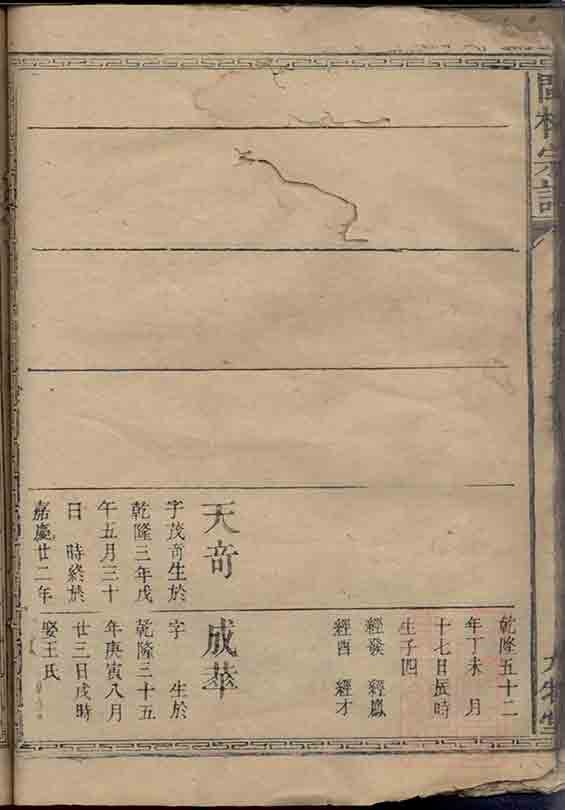 宗譜
乾隆五十二
年丁未 月
十七日辰時
生子四
經發 經鳳
經酉 經才
天奇
字茂奇生於
乾隆三年戊
午五月三十
日 時終於
嘉慶廿二年
成華
字 生於
乾隆三十五
年庚寅八月
廿三日戌時
娶王氏